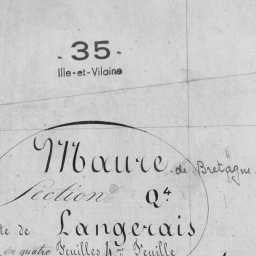 - 35 -
Ille-et-Vilaine
Maure de Bretagne
Section Q⁴
te de Langerais
en quatre Feuilles 4me Feuille